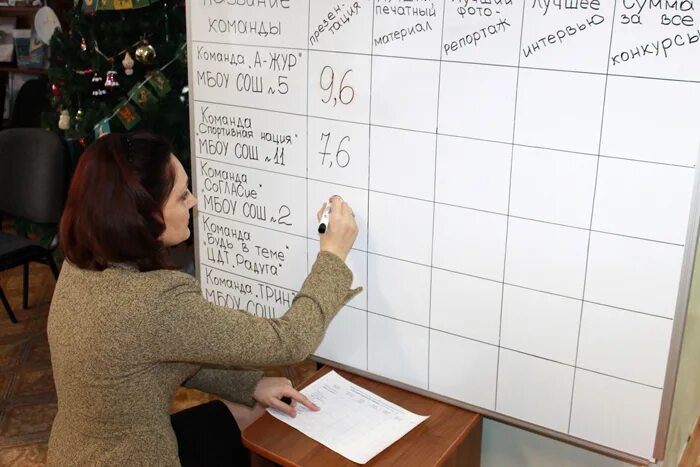 Название
команды
презен-
тация
Лучший
печатный
материал
Лучший
фото-
репортаж
Лучшее
интервью
Сумма
за все
конкурсы
Команда „А-ЖУР"
МБОУ СОШ №5
9,6
Команда
„Спортивная нация"
МБОУ СОШ №11
7,6
Команда
„СоГЛАСие"
МБОУ СОШ №2
Команда
„Будь в теме"
ЦДТ „Радуга"
Команда „ТРИН
МБОУ СОШ